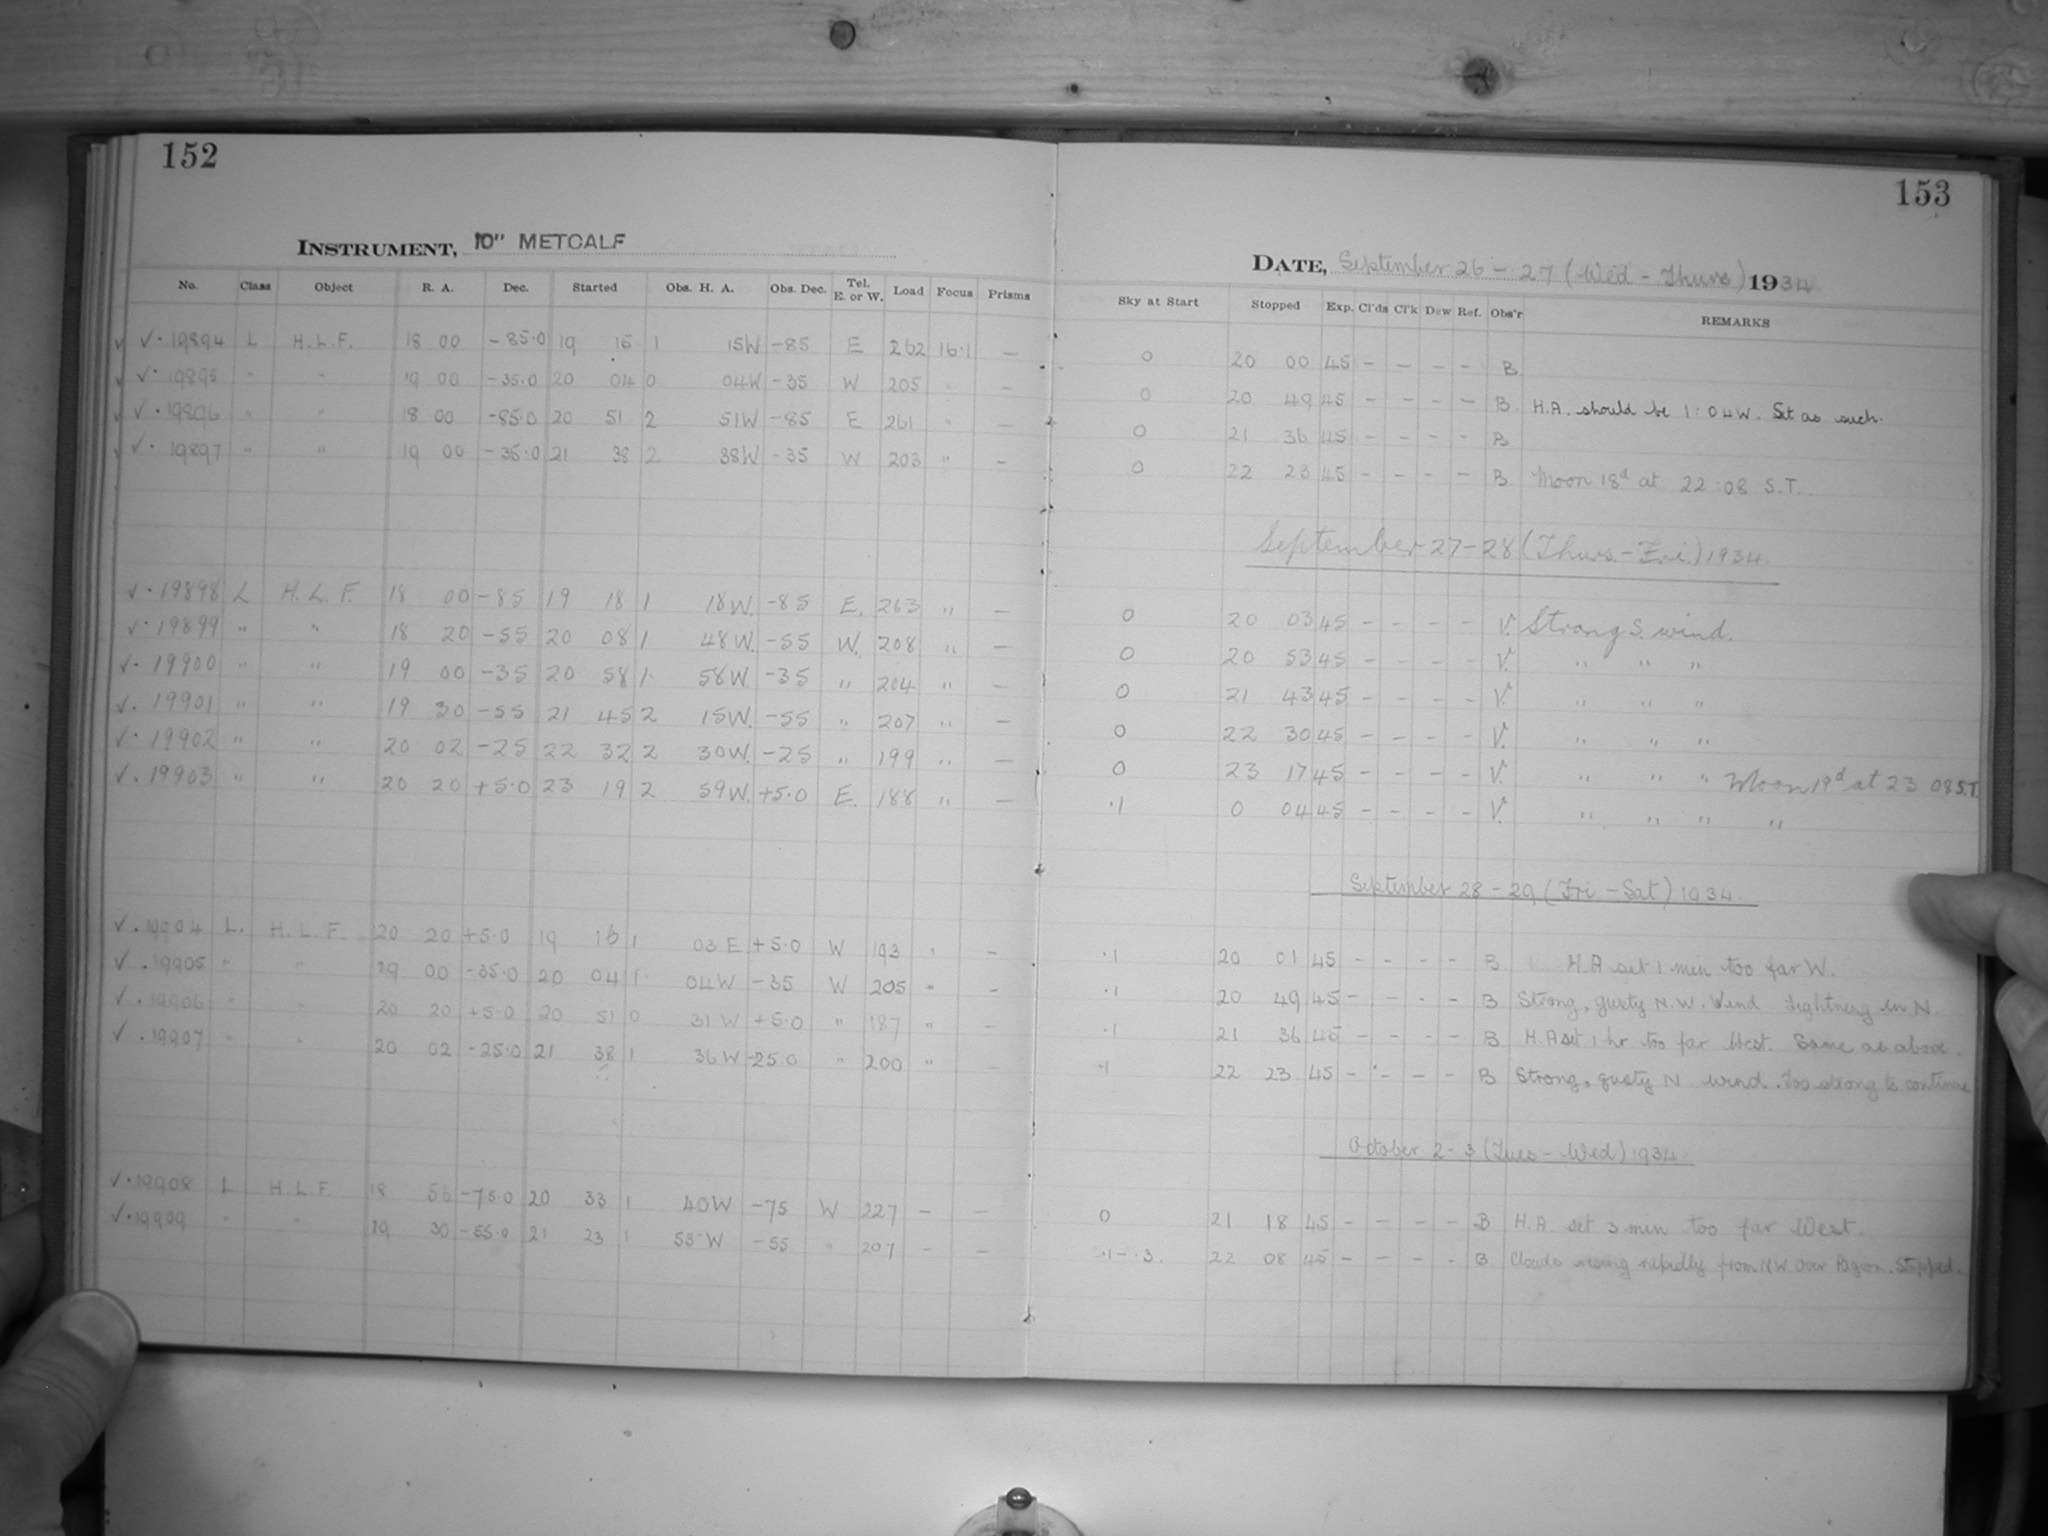 152
153
INSTRUMENT, 10" METCALF
DATE, September 26 - 27 (Wed - Thurs) 1934
No. Class Object R. A. Dec. Started Obs. H. A. Obs. Dec. Tel. E. or W. Load Focus Prisms Sky at Start Stopped Exp. Cl'ds Cl'k Dew Ref. Obs'r REMARKS
✓ · 19894 L H.L.F. 18 00 -85.0 19 15 1 15W -85 E 262 16.1 — 0 20 00 45 - - - - B
✓ · 19895 " " 19 00 -35.0 20 04 0 04W -35 W 205 " — 0 20 49 45 - - - - B H.A. should be 1:04W. Set as such.
✓ · 19896 " " 18 00 -85.0 20 51 2 51W -85 E 261 " — 0 21 36 45 - - - - B
✓ · 19897 " " 19 00 -35.0 21 38 2 38W -35 W 203 " — 0 22 23 45 - - - - B Moon 18d at 22:08 S.T.
September 27-28 (Thurs.-Fri.) 1934.
✓ · 19898 L H.L.F. 18 00 -85 19 18 1 18W. -85 E. 263 " — 0 20 03 45 - - - - V. Strong S. wind.
✓ · 19899 " " 18 20 -55 20 08 1 48W. -55 W. 208 " — 0 20 53 45 - - - - V. " " "
✓ · 19900 " " 19 00 -35 20 58 1 58W. -35 " 204 " — 0 21 43 45 - - - - V. " " "
✓ · 19901 " " 19 30 -55 21 45 2 15W. -55 " 207 " — 0 22 30 45 - - - - V. " " "
✓ · 19902 " " 20 02 -25 22 32 2 30W. -25 " 199 " — 0 23 17 45 - - - - V. " " " Moon 19d at 23 08 S.T.
✓ · 19903 " " 20 20 +5.0 23 19 2 59W. +5.0 E. 188 " — .1 0 04 45 - - - - V. " " " "
September 28 - 29 (Fri - Sat) 1934.
✓ · 19904 L. H.L.F. 20 20 +5.0 19 16 1 03 E +5.0 W 193 " — .1 20 01 45 - - - - B H.A set 1 min too far W.
✓ · 19905 " " 19 00 -35.0 20 04 1 04W -35 W 205 " — .1 20 49 45 - - - - B Strong, gusty N.W. Wind Lightning in N.
✓ · 19906 " " 20 20 +5.0 20 51 0 31 W +5.0 " 187 " — .1 21 36 45 - - - - B H.A set 1 hr too far West. Same as above.
✓ · 19907 " " 20 02 -25.0 21 38 1 36W -25.0 " 200 " — .1 22 23 45 - - - - B Strong, gusty N wind. Too strong to continue
October 2-3 (Tues - Wed) 1934
✓ · 19908 L H.L.F. 18 56 -75.0 20 33 1 40W -75 W 227 - — 0 21 18 45 - - - - B H.A. set 3 min too far West.
✓ · 19909 " " 19 30 -55.0 21 23 1 55W -55 " 207 - — .1 - .3. 22 08 45 - - - - B Clouds rising rapidly from NW over Region. Stopped.